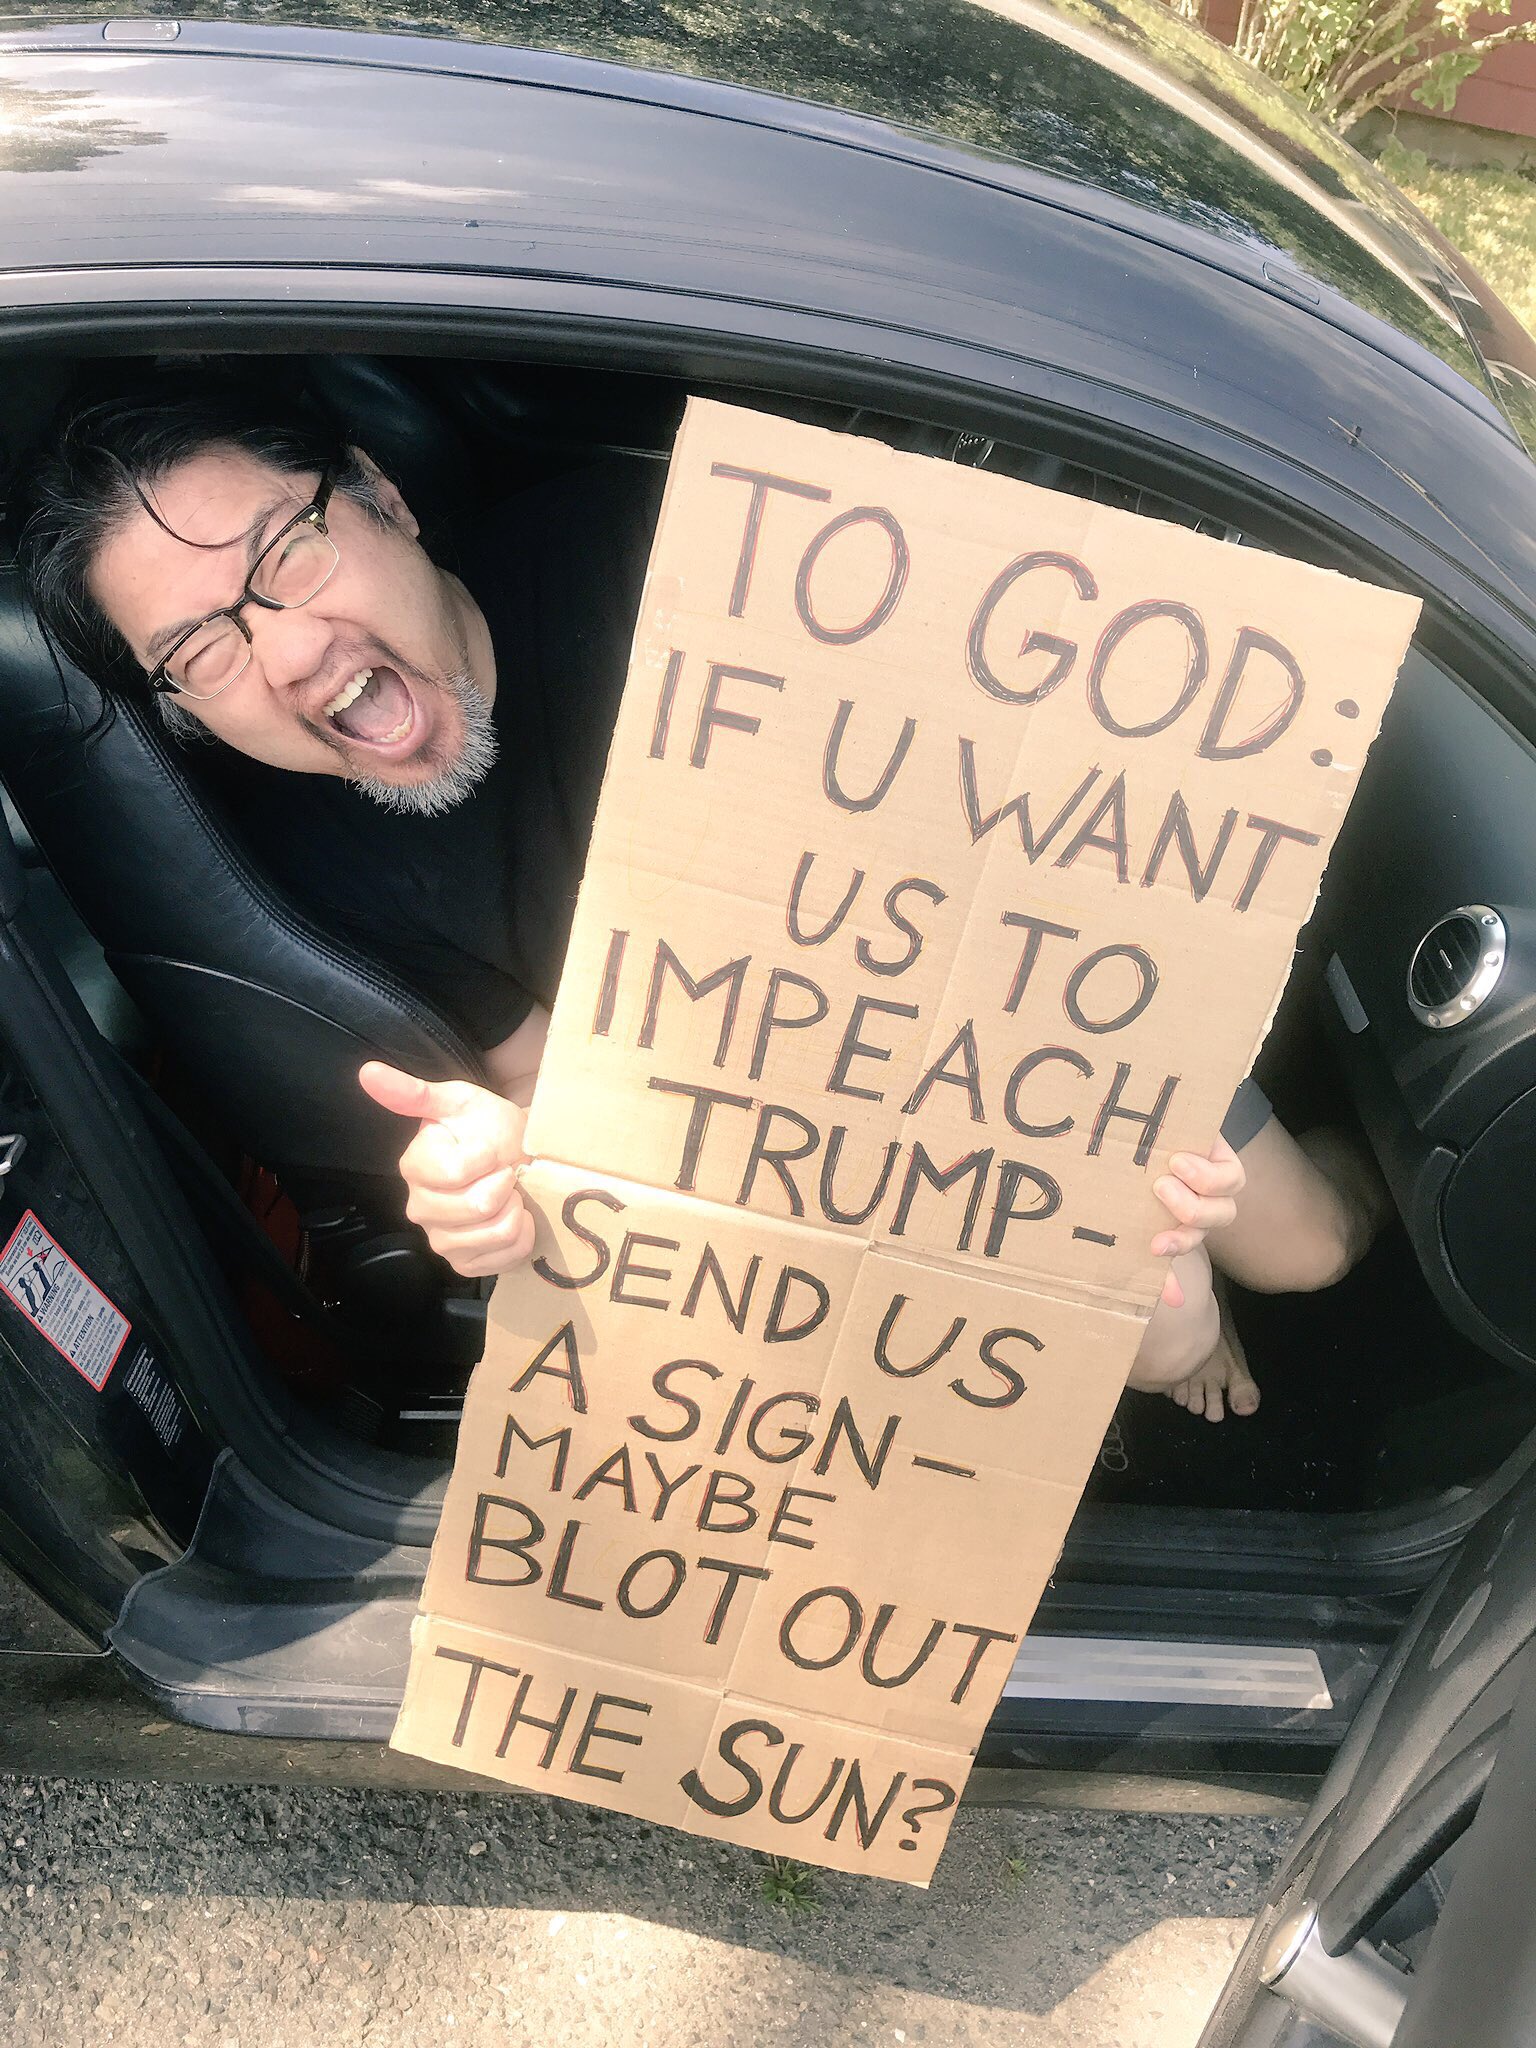 TO GOD:
IF U WANT
US TO
IMPEACH
TRUMP-
SEND US
A SIGN-
MAYBE
BLOT OUT
THE SUN?
WARNING
ATTENTION